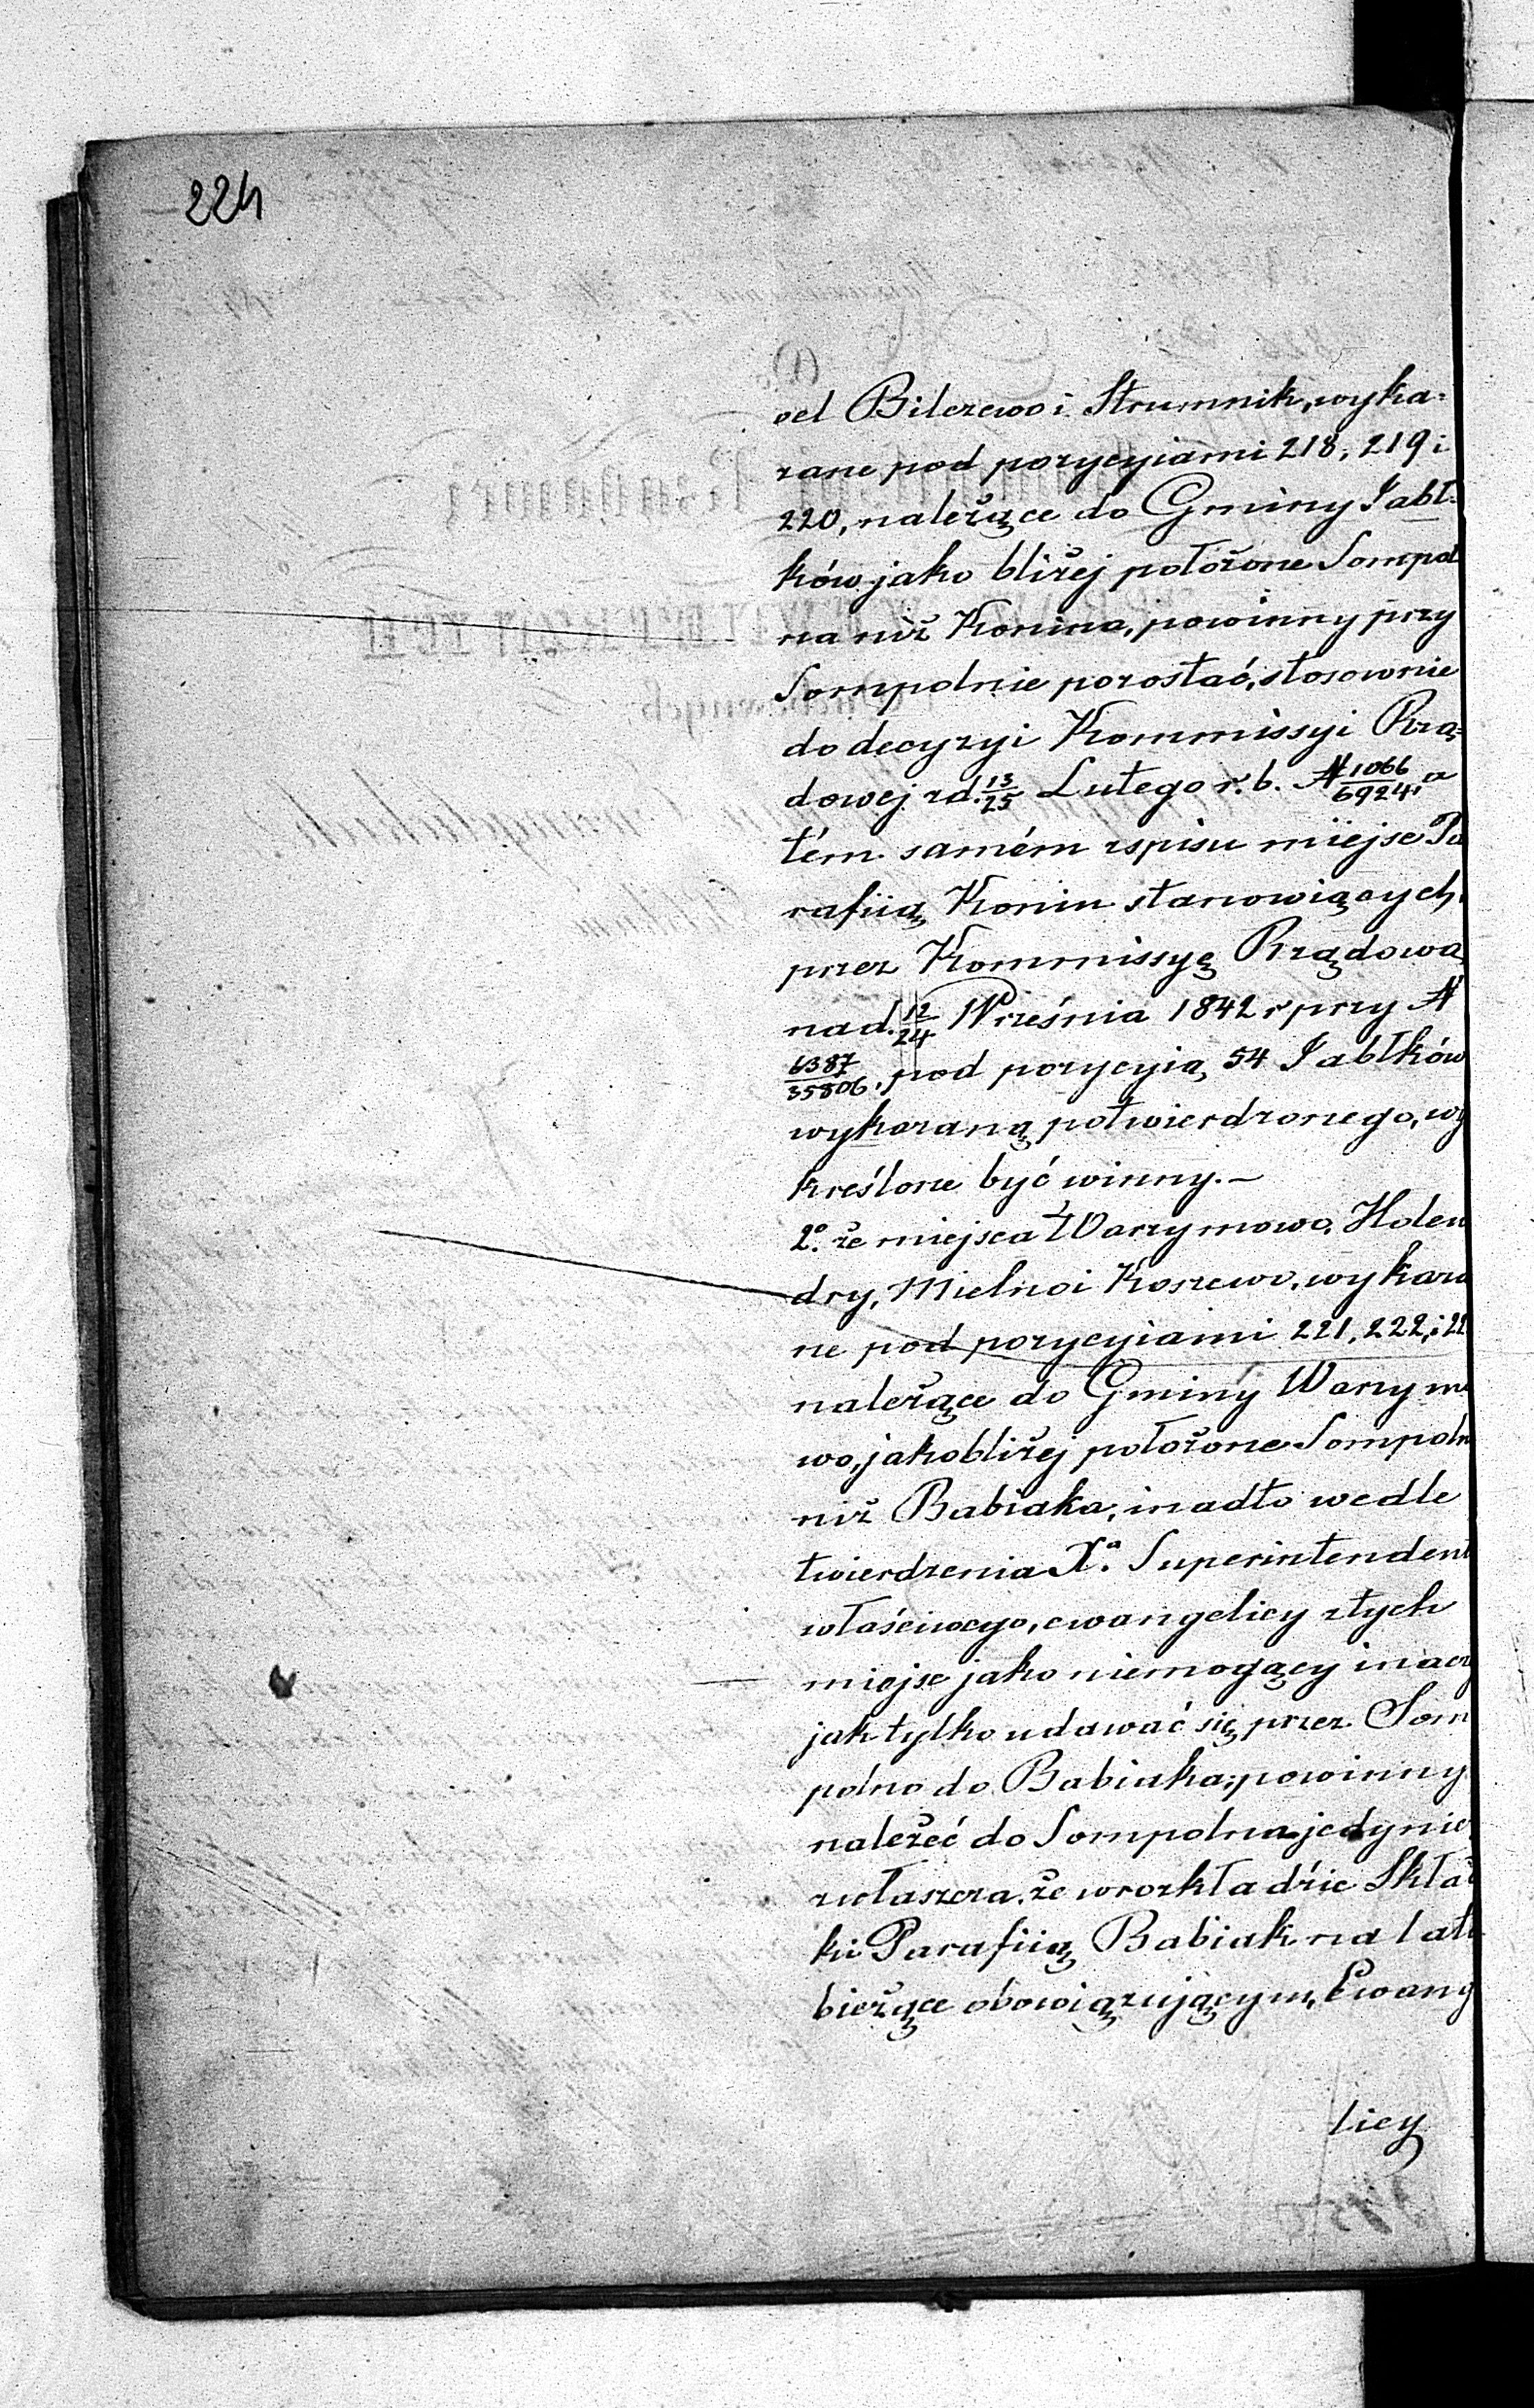 224
vel Bilczewo i Strumnik, wyka-
zane pod pozycyiami 218, 219 i
220, należące do Gminy Jabł-
ków jako bliżej położone Sompol
na niż Konina, powinny przy
Sompolnie pozostać, stosownie
do decyzyi Kommissyi Rzą-
dowej z d. 13/25 Lutego r. b. N 1066/6924, a
tém samém z spisu miejsc Pa
rafiią Konin stanowiących,
przez Kommissyę Rządową
na d. 12/24 Września 1842 r przy N
6387/35806, pod pozycyią 54 Jabłków
wykazaną potwierdzonego, wy
kreślone być winny. —
2º. że miejsca Warzymowo, Holen
dry, Mielno i Koszewo, wykaza
ne pod pozycyiami 221, 222, i 22
należące do Gminy Warzymo
wo, jako bliżej położone Sompoln
niż Babiaka, i nadto wedle
twierdzenia Xª. Superintendent
właściwego, ewangelicy z tych
miejsc jako niemogący inacz
jak tylko udawać się przez Som
polno do Babiaka; powinny
należeć do Sompolna jedynie,
zwłaszcza, że w rozkładzie Skład
ki Parafiią Babiak na lat
bieżące obowiązującym, Ewang
licy